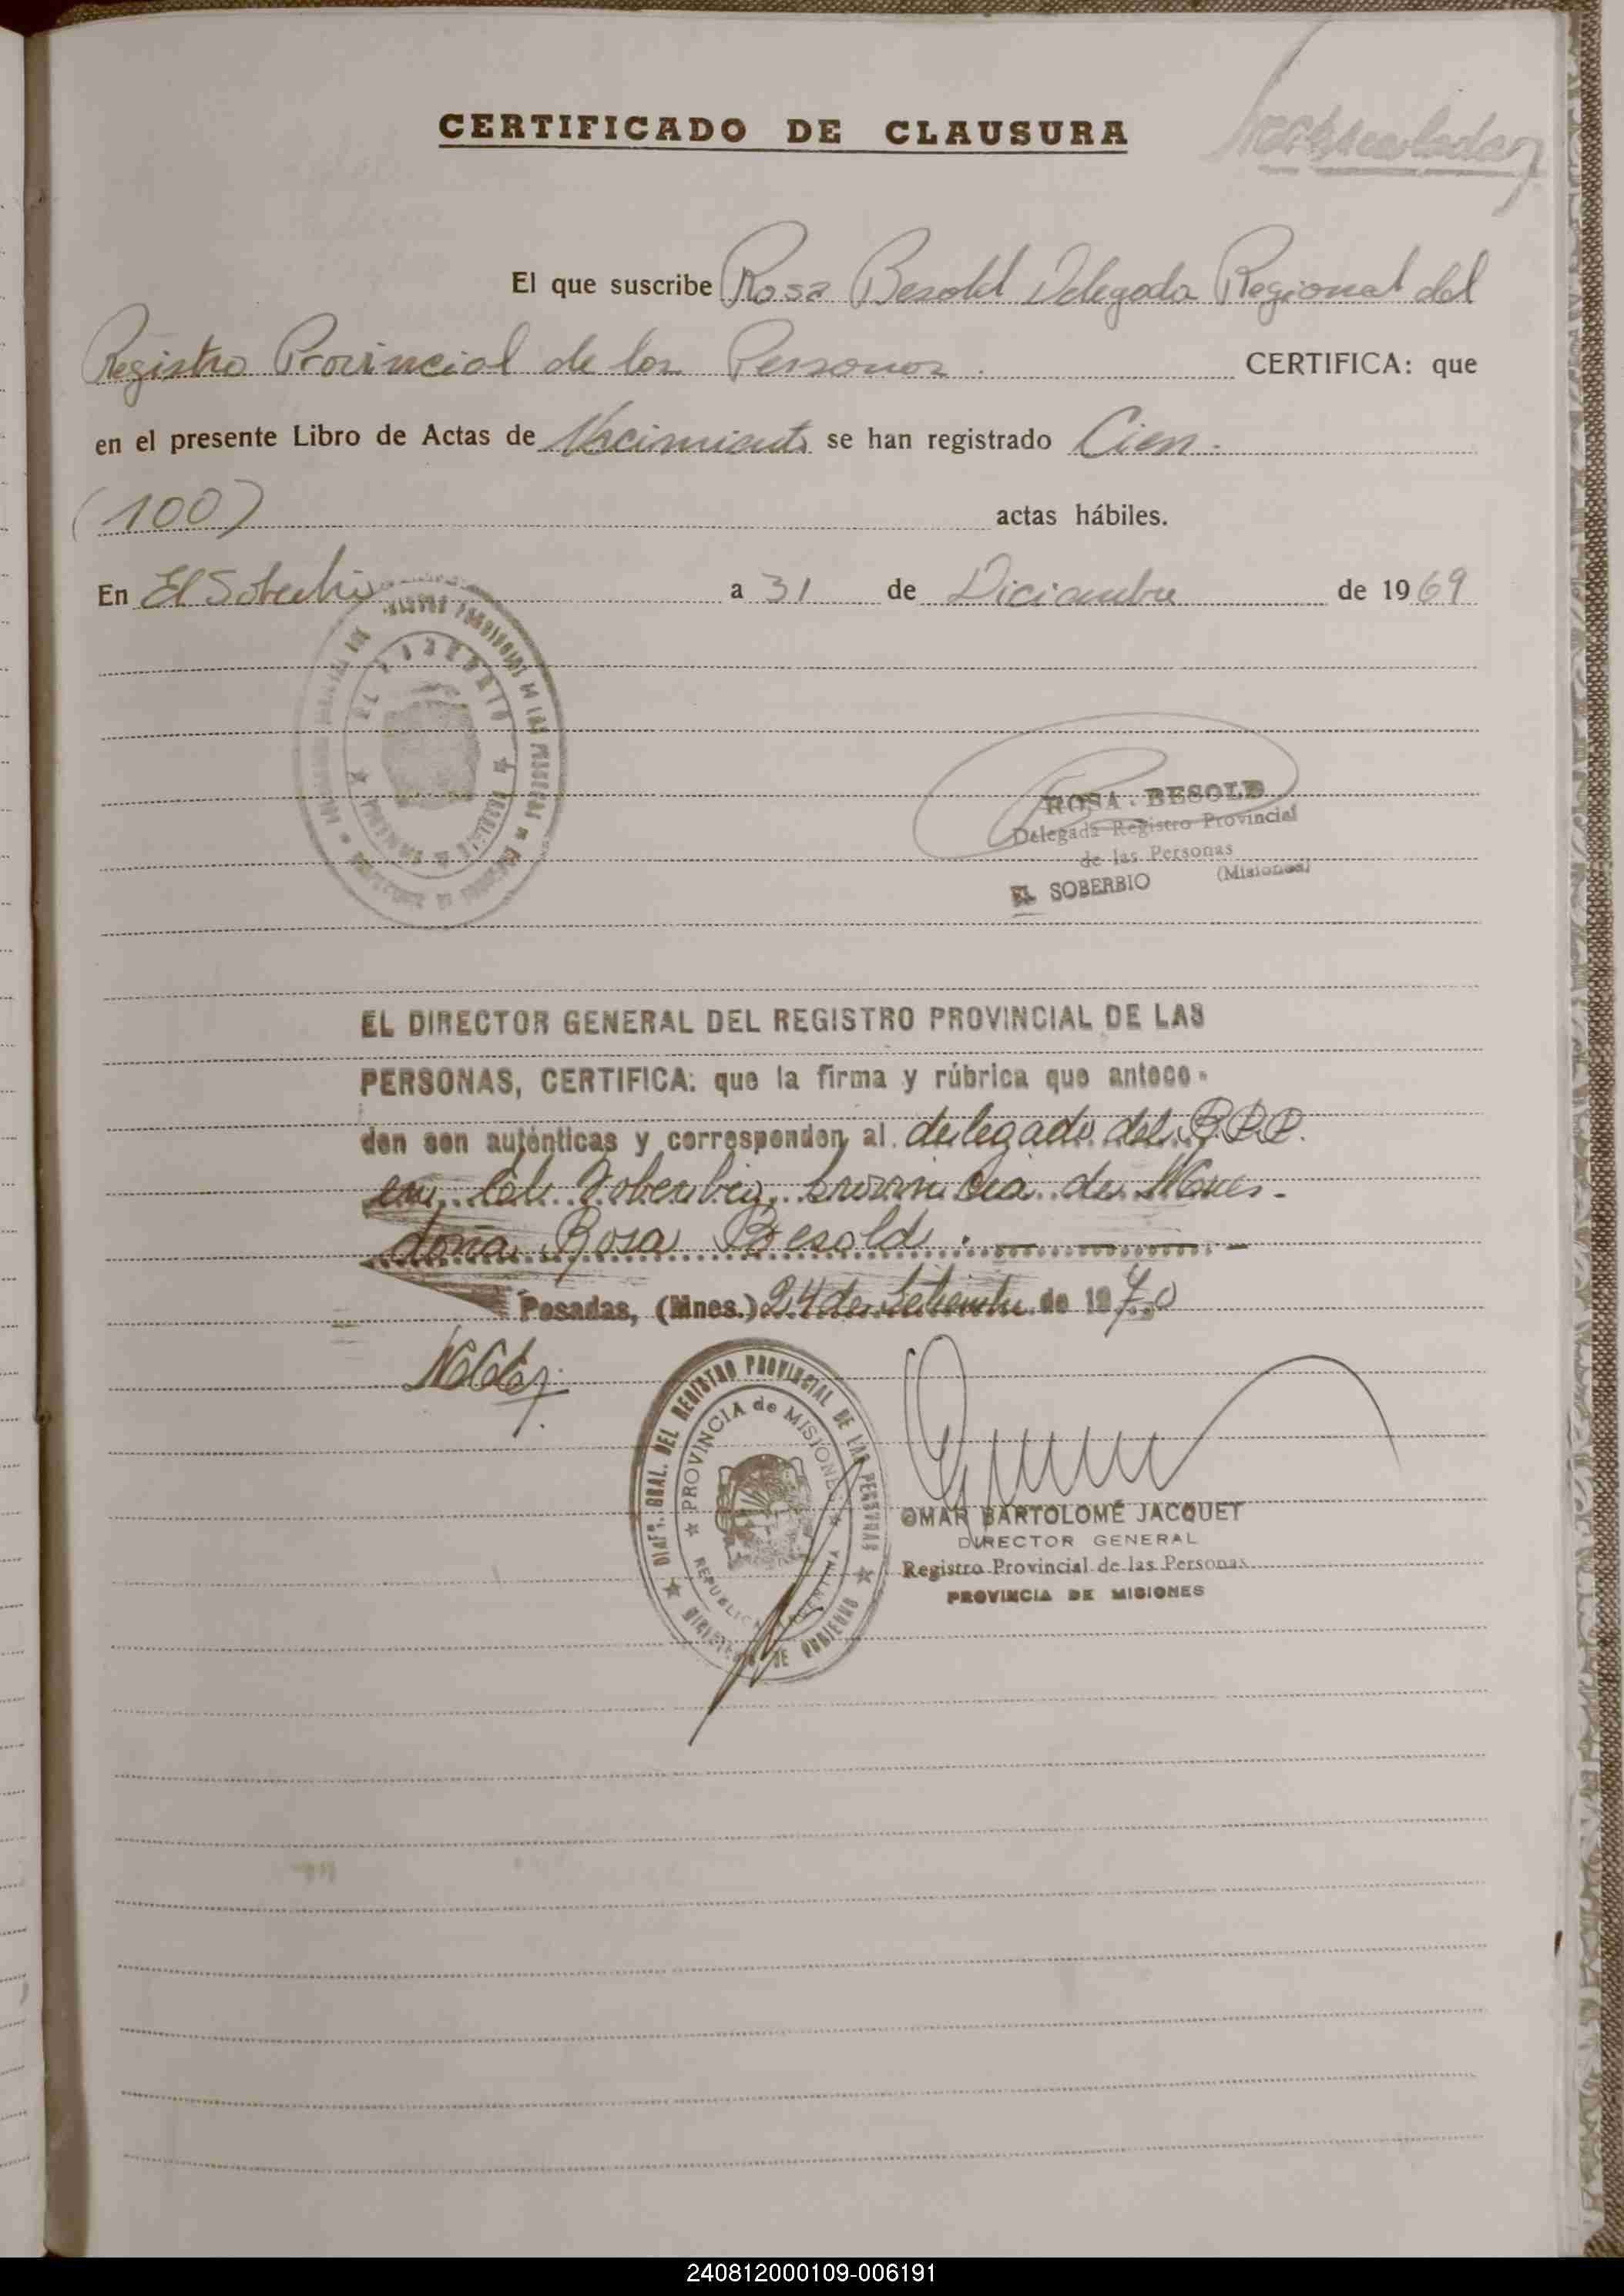 CERTIFICADO DE CLAUSURA
El que suscribe Rosa Besold Delegada Regional del
Registro Provincial de las Personas. CERTIFICA: que
en el presente Libro de Actas de Nacimiento se han registrado Cien.
(100) actas hábiles.
En El Soberbio a 31 de Diciembre de 1969
EL SOBERBIO
ROSA BESOLD
Delegada Registro Provincial
de las Personas
EL SOBERBIO (Misiones)
EL DIRECTOR GENERAL DEL REGISTRO PROVINCIAL DE LAS
PERSONAS, CERTIFICA: que la firma y rúbrica que antece-
den son auténticas y corresponden al delegado del R.P.P.
en Soberbio, provincia de Mnes.
doña Rosa Besold.
Posadas, (Mnes.) 24 de Setiembre de 1970
DIREC. GRAL. DEL REGISTRO PROVINCIAL DE LAS PERSONAS
MINISTERIO DE GOBIERNO
PROVINCIA de MISIONES
REPUBLICA ARGENTINA
OMAR BARTOLOMÉ JACQUET
DIRECTOR GENERAL
Registro Provincial de las Personas
PROVINCIA DE MISIONES
240812000109-006191